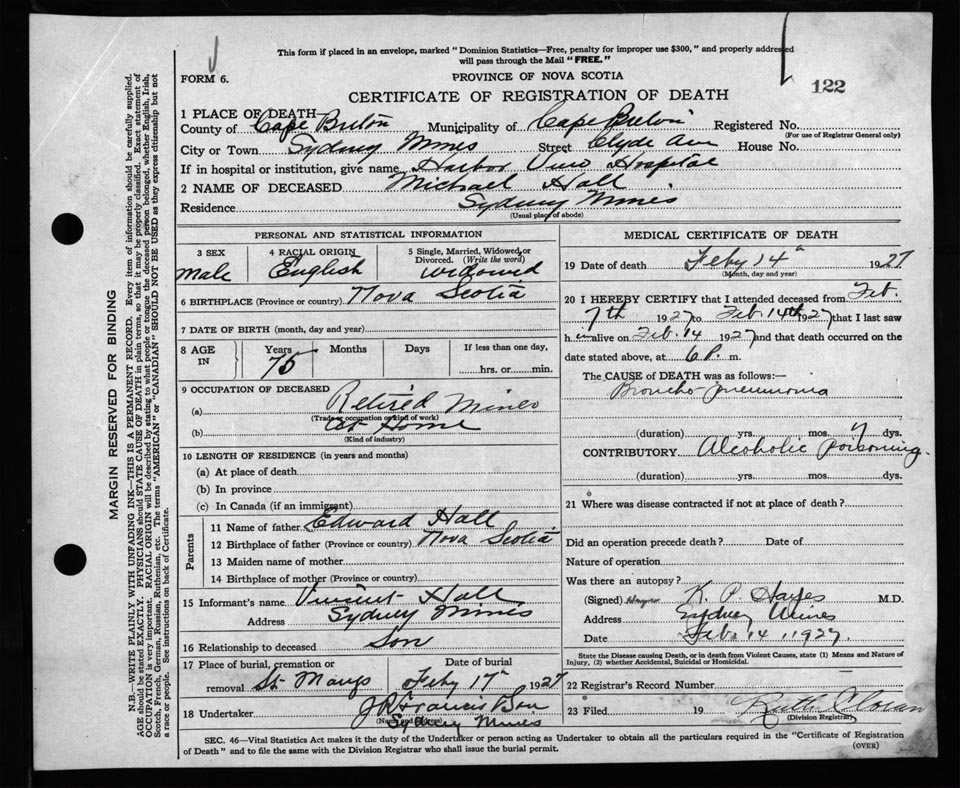 This form if placed in an envelope, marked "Dominion Statistics—Free, penalty for improper use $300," and properly addressed
will pass through the Mail "FREE."
FORM 6.
PROVINCE OF NOVA SCOTIA
122
CERTIFICATE OF REGISTRATION OF DEATH
1 PLACE OF DEATH—
County of Cape Breton Municipality of Cape Breton Registered No.
(For use of Registrar General only)
City or Town Sydney Mines Street Clyde Ave House No.
If in hospital or institution, give name Harbor View Hospital
2 NAME OF DECEASED Michael Hall
Residence Sydney Mines
(Usual place of abode)
PERSONAL AND STATISTICAL INFORMATION
3 SEX
male
4 RACIAL ORIGIN
English
5 Single, Married, Widowed, or
Divorced. (Write the word)
widowed
6 BIRTHPLACE (Province or country) Nova Scotia
7 DATE OF BIRTH (month, day and year)
8 AGE IN
Years Months Days If less than one day,
75 hrs. or min.
9 OCCUPATION OF DECEASED
(a) Retired Miner
(Trade or occupation or kind of work)
(b) at Home
(Kind of industry)
10 LENGTH OF RESIDENCE (in years and months)
(a) At place of death
(b) In province
(c) In Canada (if an immigrant)
Parents
11 Name of father Edward Hall
12 Birthplace of father (Province or country) Nova Scotia
13 Maiden name of mother
14 Birthplace of mother (Province or country)
15 Informant's name Vincent Hall
Address Sydney Mines
16 Relationship to deceased Son
17 Place of burial, cremation or Date of burial
removal St Marys Feby 17th 1927
18 Undertaker Francis
Sydney Mines
MEDICAL CERTIFICATE OF DEATH
19 Date of death Feby 14th 1927
(Month, day and year)
20 I HEREBY CERTIFY that I attended deceased from Feb.
7th 1927 to Feb. 14th 1927 that I last saw
h im alive on Feb. 14 1927 and that death occurred on the
date stated above, at 6 P. m.
The CAUSE of DEATH was as follows:—
Broncho-pneumonia
(duration) yrs. mos. 7 dys.
CONTRIBUTORY Alcoholic poisoning.
(duration) yrs. mos. dys.
21 Where was disease contracted if not at place of death?
Did an operation precede death? Date of
Nature of operation
Was there an autopsy?
(Signed) K. P. Hayes M.D.
Address Sydney Mines
Date Feb. 14 1927.
State the Disease causing Death, or in death from Violent Causes, state (1) Means and Nature of
Injury, (2) whether Accidental, Suicidal or Homicidal.
22 Registrar's Record Number
23 Filed 19 Ruth
(Division Registrar)
SEC. 46—Vital Statistics Act makes it the duty of the Undertaker or person acting as Undertaker to obtain all the particulars required in the "Certificate of Registration
of Death" and to file the same with the Division Registrar who shall issue the burial permit.
(OVER)
MARGIN RESERVED FOR BINDING
N.B.—WRITE PLAINLY WITH UNFADING INK—THIS IS A PERMANENT RECORD. Every item of information should be carefully supplied.
AGE should be stated EXACTLY. PHYSICIANS should STATE CAUSE OF DEATH in plain terms, so that it may be properly classified. Exact statement of
OCCUPATION is very important. RACIAL ORIGIN will be described by stating to what people or tongue the deceased person belonged, whether English, Irish,
Scotch, French, German, Russian, Ruthenian, etc. The terms "AMERICAN" or "CANADIAN" SHOULD NOT BE USED as they express citizenship but not
a race or people. See instructions on back of Certificate.